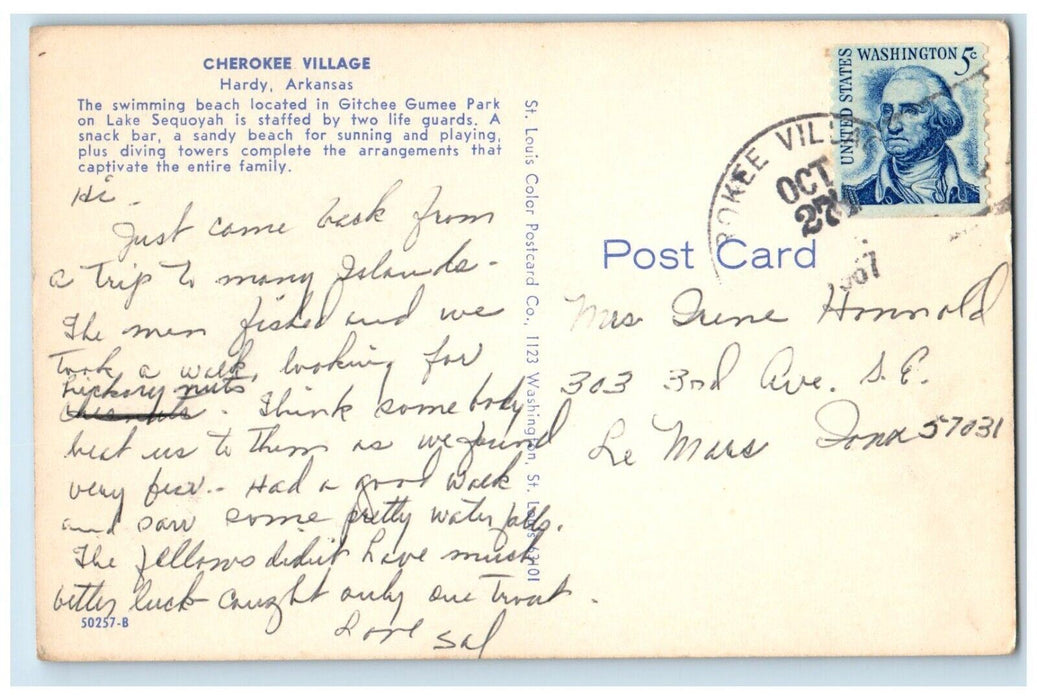 CHEROKEE VILLAGE
Hardy, Arkansas
The swimming beach located in Gitchee Gumee Park
on Lake Sequoyah is staffed by two life guards. A
snack bar, a sandy beach for sunning and playing,
plus diving towers complete the arrangements that
captivate the entire family.
Hi -
Just came back from
a trip to many Islands -
The men fished and we
took a walk, looking for
hickory nuts
. Think somebody
beat us to them as we found
very few. - Had a good walk
and saw some pretty water falls.
The fellows didn't have much
better luck caught only one trout.
Love Sal
50257-B
St. Louis Color Postcard Co., 1123 Washington, St. Louis 63101
Post Card
UNITED STATES
WASHINGTON 5c
OKEE VILL
OCT
27
1967
Mrs Irene Honnold
303 3rd Ave. S.E.
Le Mars Iowa 57031